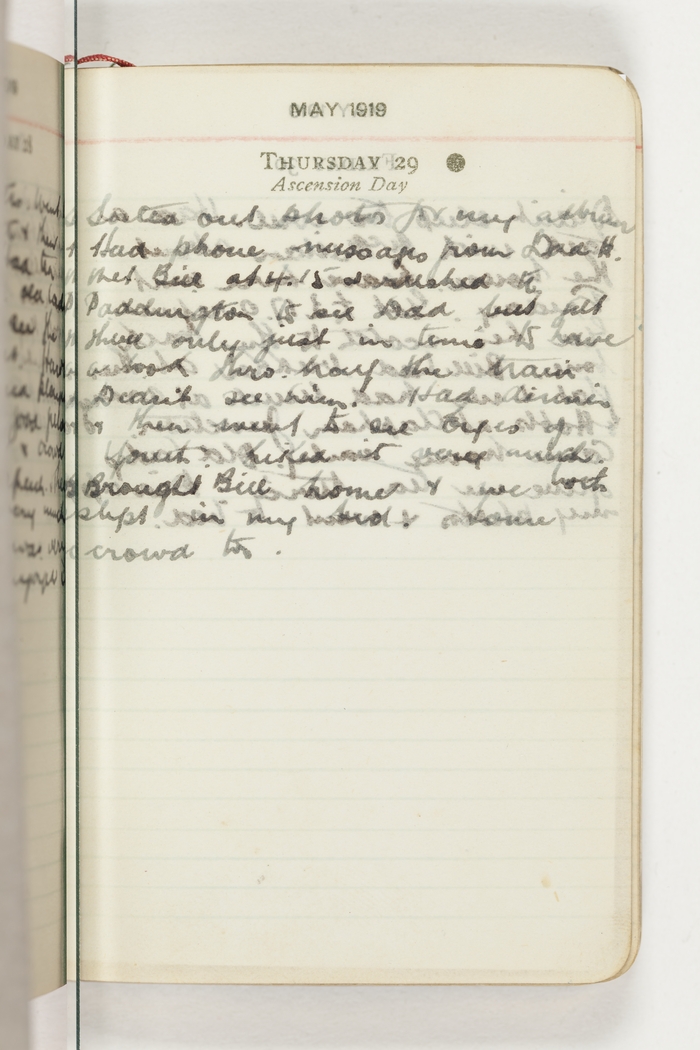 MAY 1919
THURSDAY 29
Ascension Day
Sorted out photos for my album
Had phone messages from Dad H.
Met Bill at 4.15 & rushed to
Paddington to see Dad but got
there only just in time to have
a look thro. half the train
Didn't see him. Had dinner
& then went to see Eyes of
Youth. liked it very much.
Brought Bill home & we both
slept in my bed. Some
crowd too.